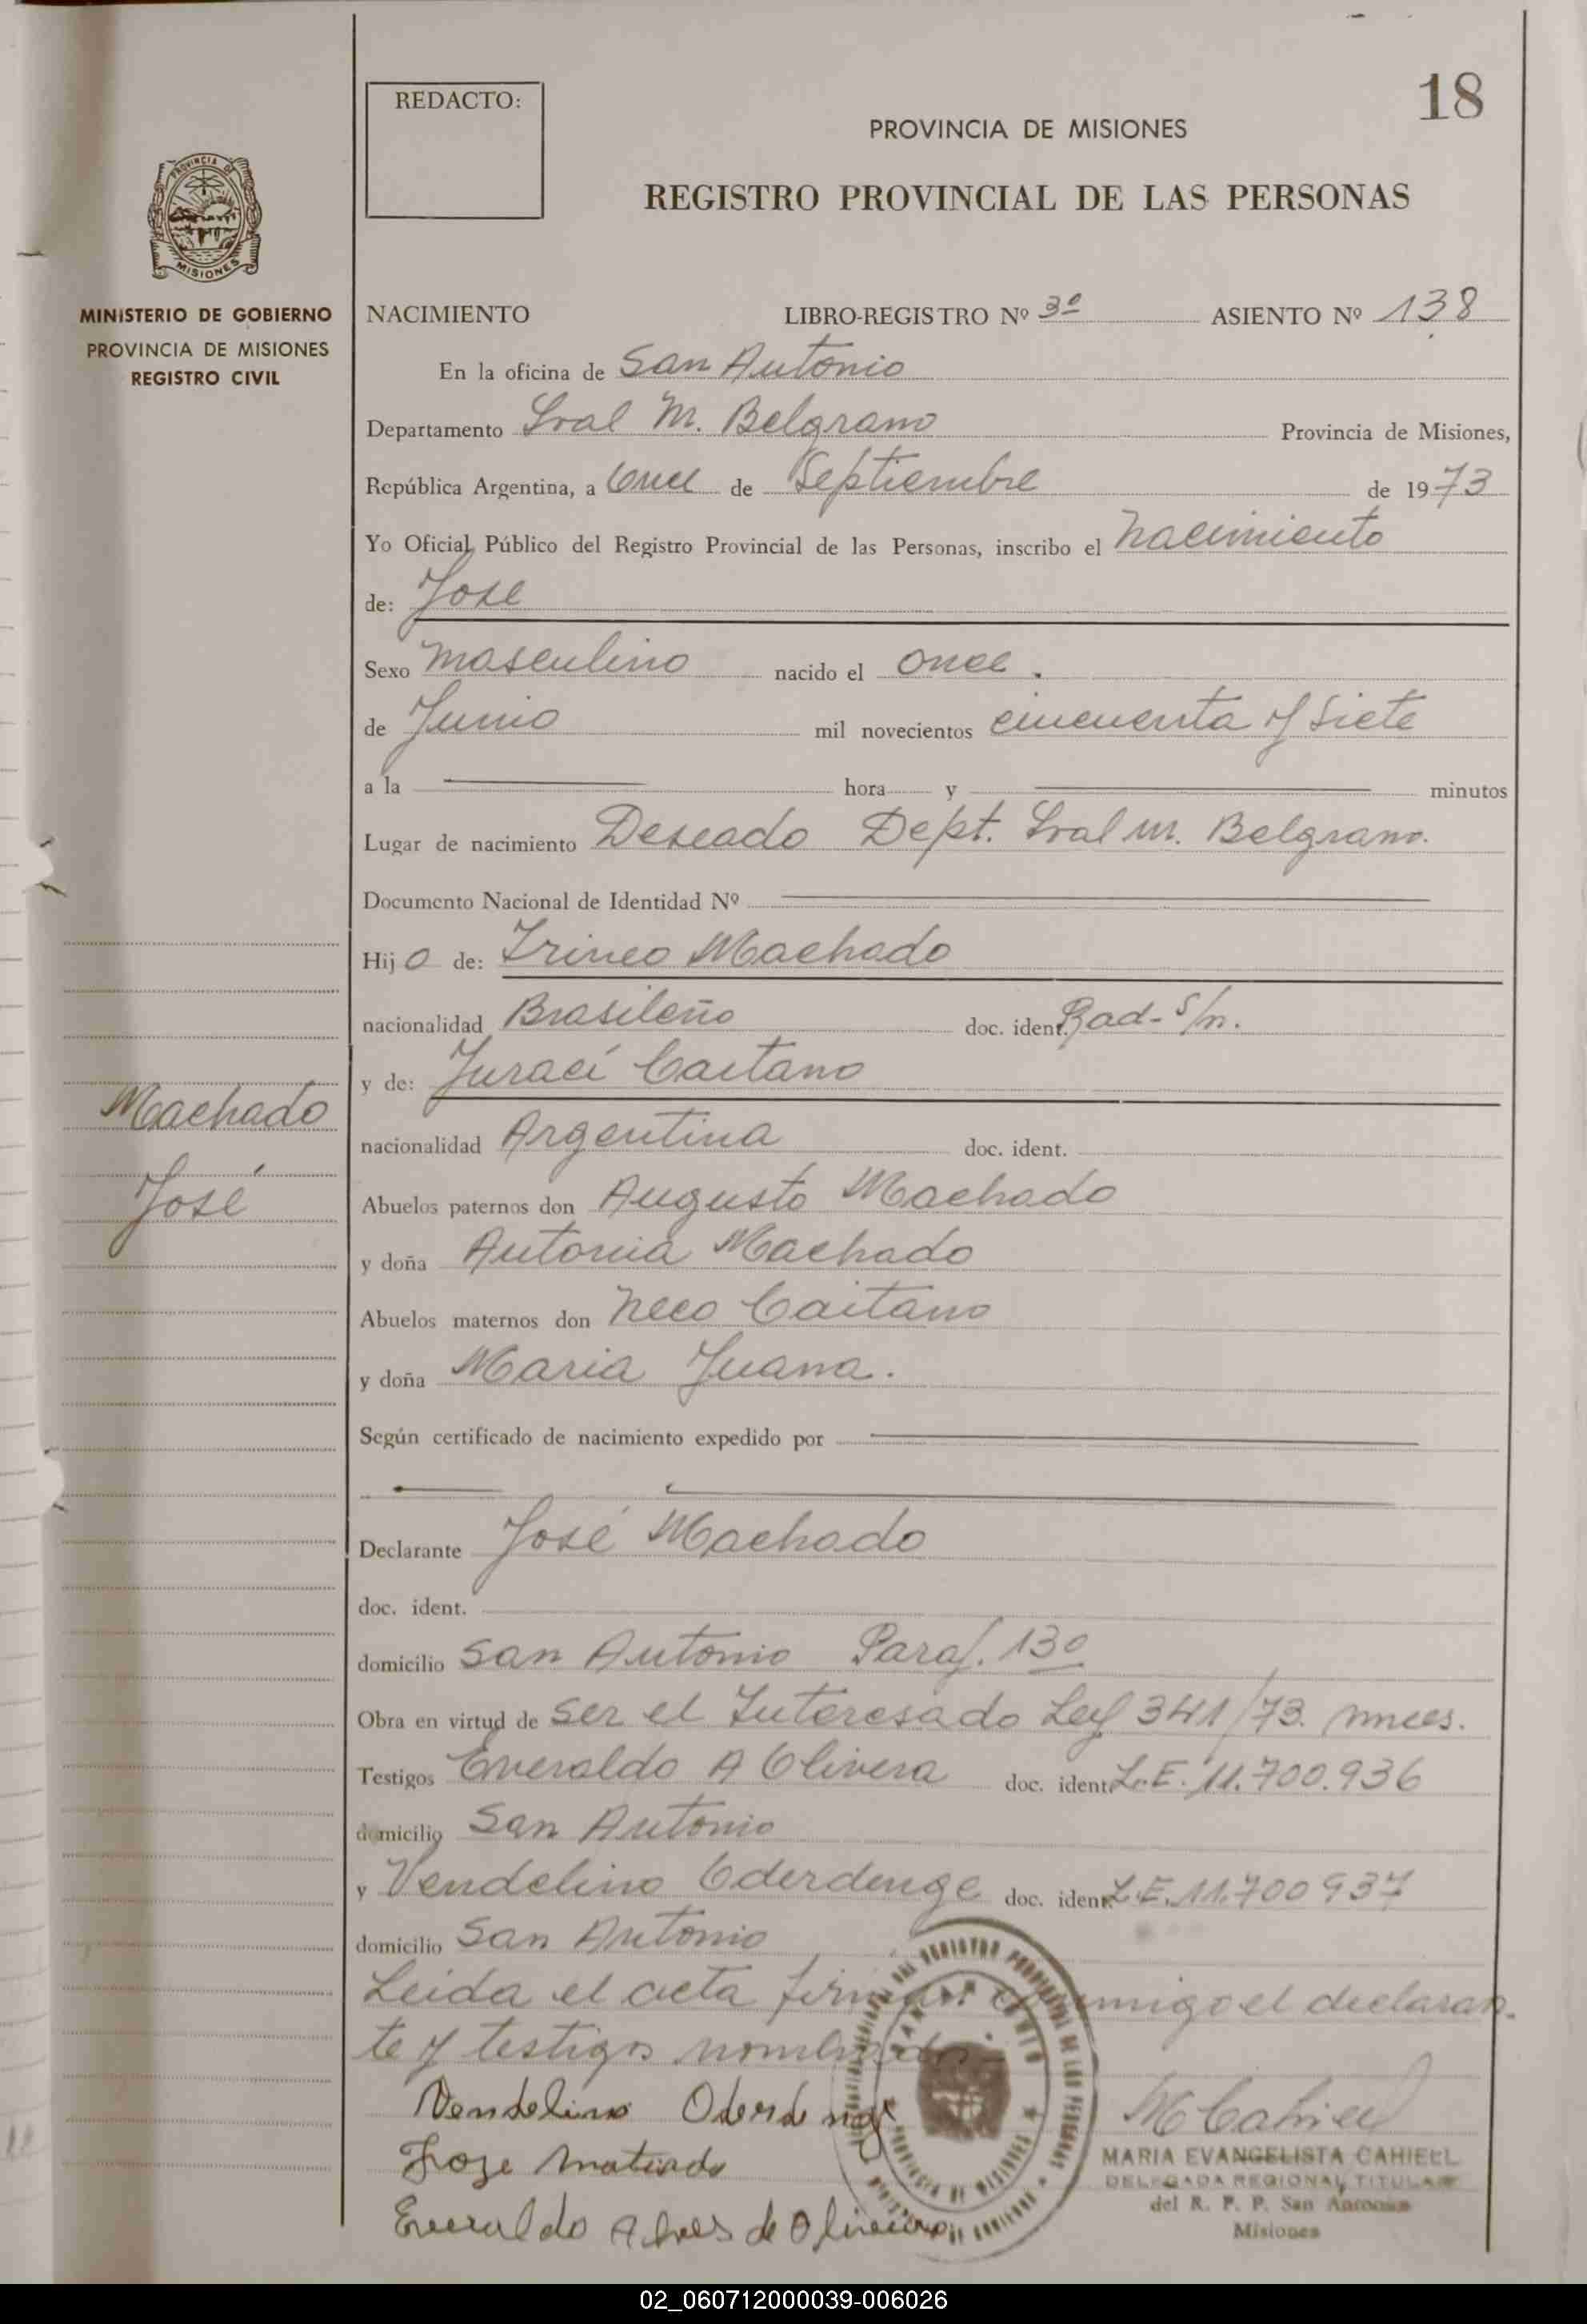 18
REDACTO:
PROVINCIA DE MISIONES
REGISTRO PROVINCIAL DE LAS PERSONAS
PROVINCIA DE
MISIONES
MINISTERIO DE GOBIERNO
PROVINCIA DE MISIONES
REGISTRO CIVIL
NACIMIENTO LIBRO-REGISTRO Nº 3º ASIENTO Nº 138
En la oficina de San Antonio
Departamento Gral M. Belgrano Provincia de Misiones,
República Argentina, a Once de Septiembre de 1973
Yo Oficial Público del Registro Provincial de las Personas, inscribo el nacimiento
de: Jose
Sexo masculino nacido el once.
de Junio mil novecientos cincuenta y siete
a la hora y minutos
Lugar de nacimiento Deseado Dept. Gral M. Belgrano.
Documento Nacional de Identidad Nº
Hijo de: Irineo Machado
nacionalidad Brasileño doc. ident. Rad- S/n.
y de: Juraci Caetano
Machado
nacionalidad Argentina doc. ident.
José
Abuelos paternos don Augusto Machado
y doña Antonia Machado
Abuelos maternos don Neco Caitano
y doña Maria Juana.
Según certificado de nacimiento expedido por
Declarante José Machado
doc. ident.
domicilio San Antonio Paraj. 130
Obra en virtud de ser el Interesado Ley 341/73. mnes.
Testigos Everaldo A Olivera doc. ident. L.E. 11.700.936
domicilio San Antonio
y Vendelino Oderdenge doc. ident. L.E. 11.700937
domicilio San Antonio
Leida el acta firman conmigo el declaran-
te y testigos nombrados.-
Vendelino
Everaldo Alves de Oliveira
MCahiell
MARIA EVANGELISTA CAHIELL
DELEGADA REGIONAL TITULAR
del R. P. P. San Antonio
Misiones
02_060712000039-006026